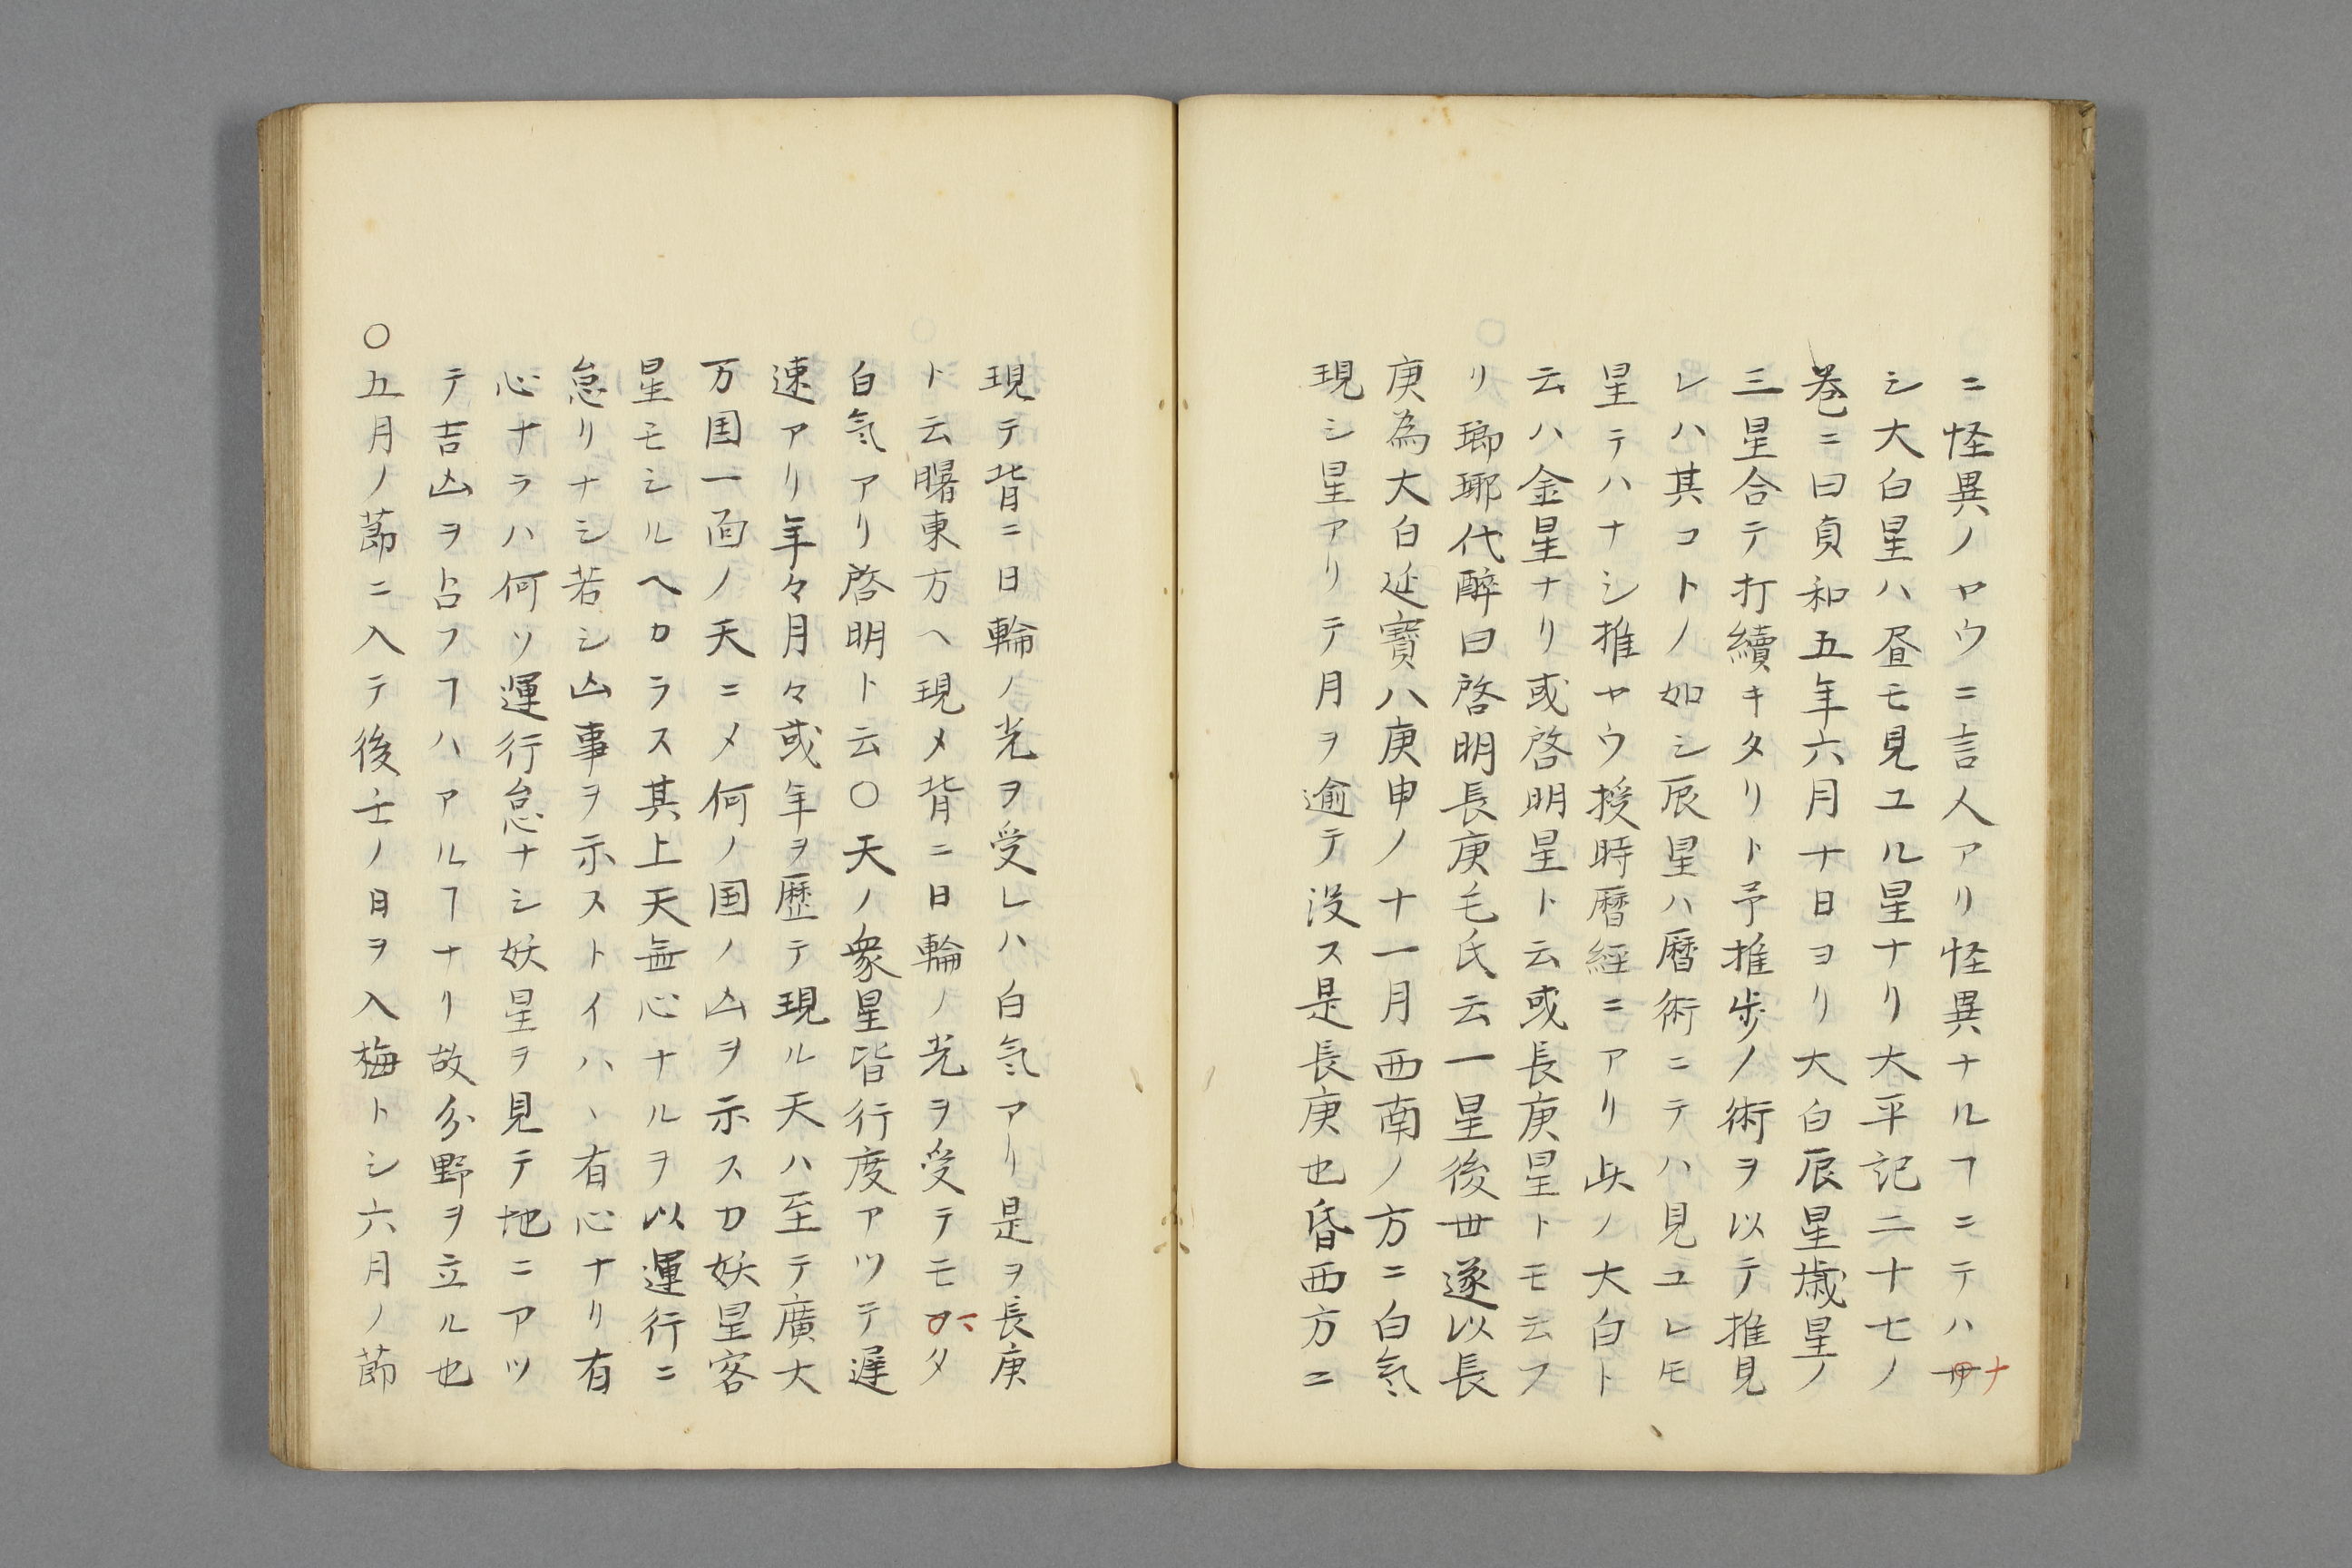 ニ怪異ノヤウニ言人アリ怪異ナルヿニテハナ
シ大白星ハ昼モ見ユル星ナリ大平記二十七ノ
巻ニ曰貞和五年六月十日ヨリ大白辰星歳星ノ
三星合テ打續キタリト予推歩ノ術ヲ以テ推見
レハ其コトノ如シ辰星ハ暦術ニテハ見ユレモ
星テハナシ推ヤウ授時暦經ニアリ此ノ大白ト
云ハ金星ナリ或啓明星ト云或長庚星トモ云フ
リ瑯琊代醉曰啓明長庚毛氏云一星後世遂以長
庚為大白延寳八庚申ノ十一月西南ノ方ニ白氣
現シ星アリテ月ヲ逾テ没ス是長庚也昏西方ニ
現テ背ニ日輪ノ光ヲ受レハ白氣アリ是ヲ長庚
ト云曙東方ヘ現メ背ニ日輪ノ光ヲ受テモタ
白氣アリ啓明ト云〇天ノ衆星皆行度アツテ遅
速アリ年々月々或年ヲ歴テ現ル天ハ至テ廣大
万国一面ノ天ニメ何ノ国ノ凶ヲ示スカ妖星客
星モシルヘカラス其上天無心ナルヲ以運行ニ
怠リナシ若シ凶事ヲ示ストイハヽ有心ナリ有
心ナラハ何ソ運行怠ナシ妖星ヲ見テ地ニアツ
テ吉凶ヲ占フヿハアルヿナリ故分野ヲ立ル也
〇五月ノ節ニ入テ後壬ノ日ヲ入梅トシ六月ノ節